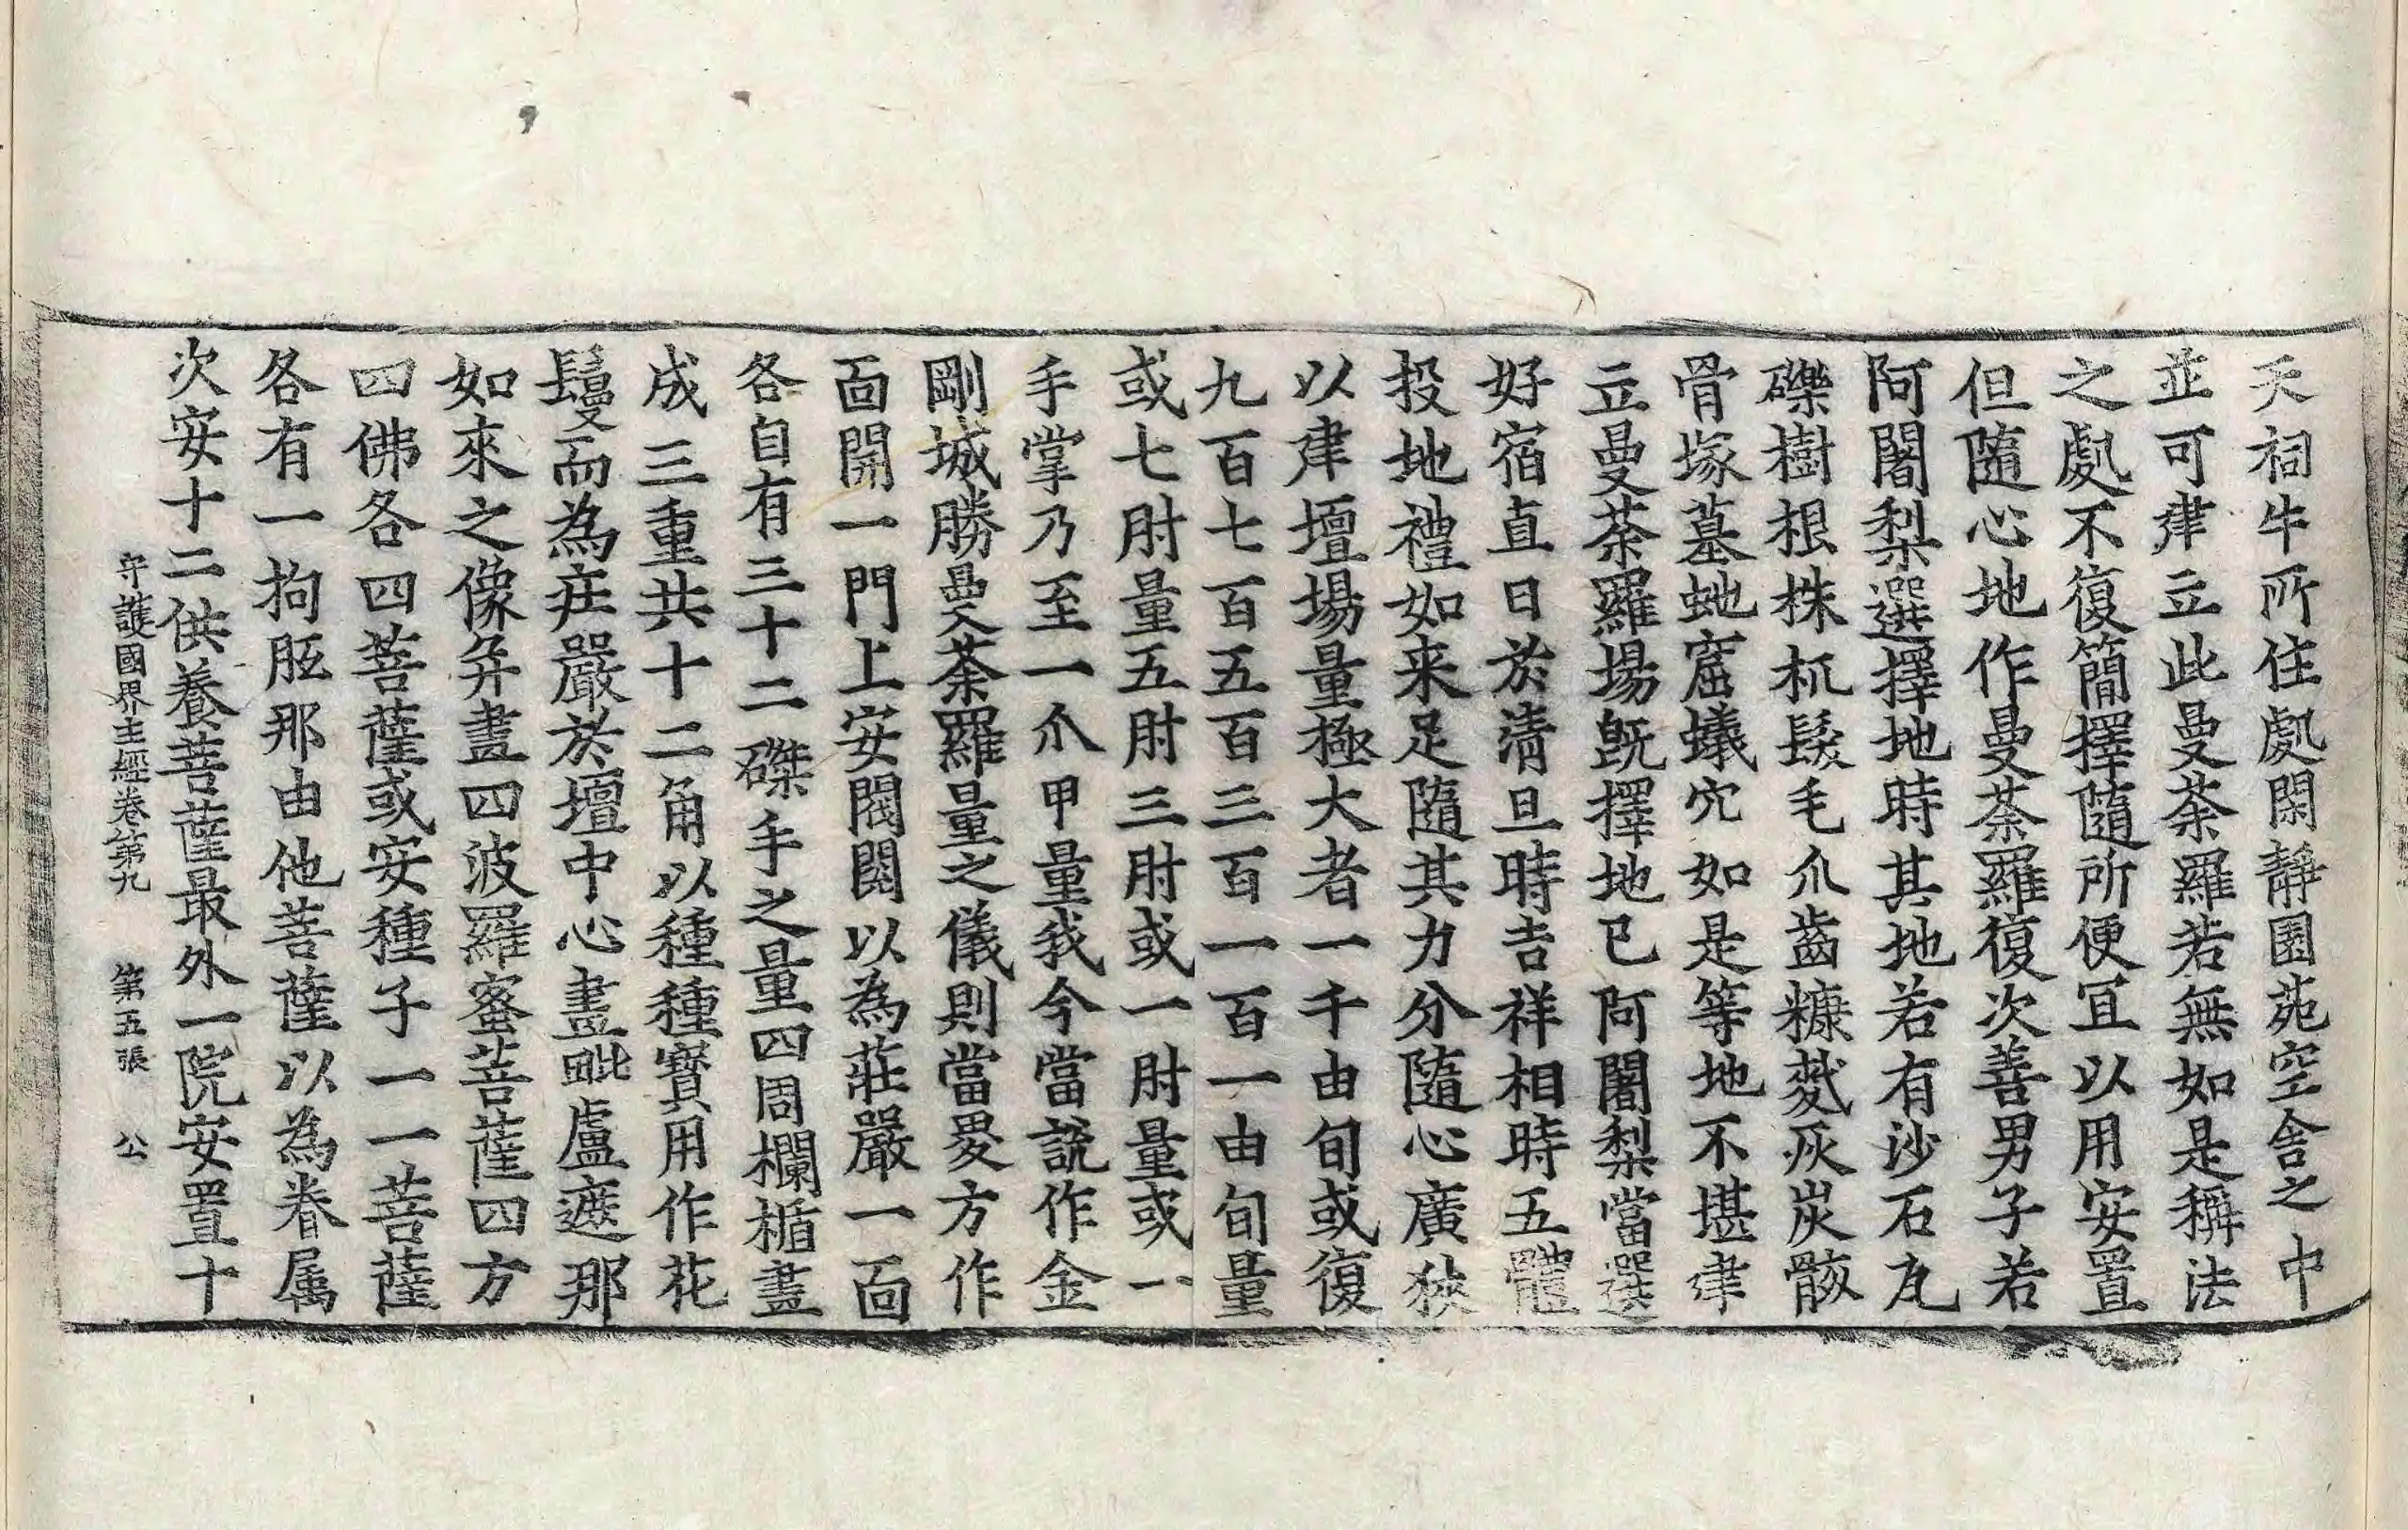 天祠牛所住處閑靜園苑空舍之中
並可建立此曼荼羅若無如是稱法
之處不復簡擇隨所便冝以用安置
但隨心地作曼荼羅復次善男子若
阿闍梨選擇地時其地若有沙石瓦
礫樹根株杌髮毛爪齒糠麩灰炭骸
骨塚墓虵窟蟻穴如是等地不堪建
立曼荼羅場旣擇地已阿闍梨當選
好宿直日於清旦時吉祥相時五體
投地禮如来足隨其力分隨心廣狹
以建壇場量極大者一千由旬或復
九百七百五百三百一百一由旬量
或七肘量五肘三肘或一肘量或一
手掌乃至一爪甲量我今當說作金
剛城勝曼荼羅量之儀則當畟方作
面開一門上安閥閱以為莊嚴一面
各自有三十二磔手之量四周欄楯畫
成三重共十二角以種種寶用作花
鬘而為莊嚴於壇中心畫毗盧遮那
如來之像并畫四波羅蜜菩薩四方
四佛各四菩薩或安種子一一菩薩
各有一拘胝那由他菩薩以為眷属
次安十二供養菩薩最外一院安置十
守護國界主經卷第九 第五張 公